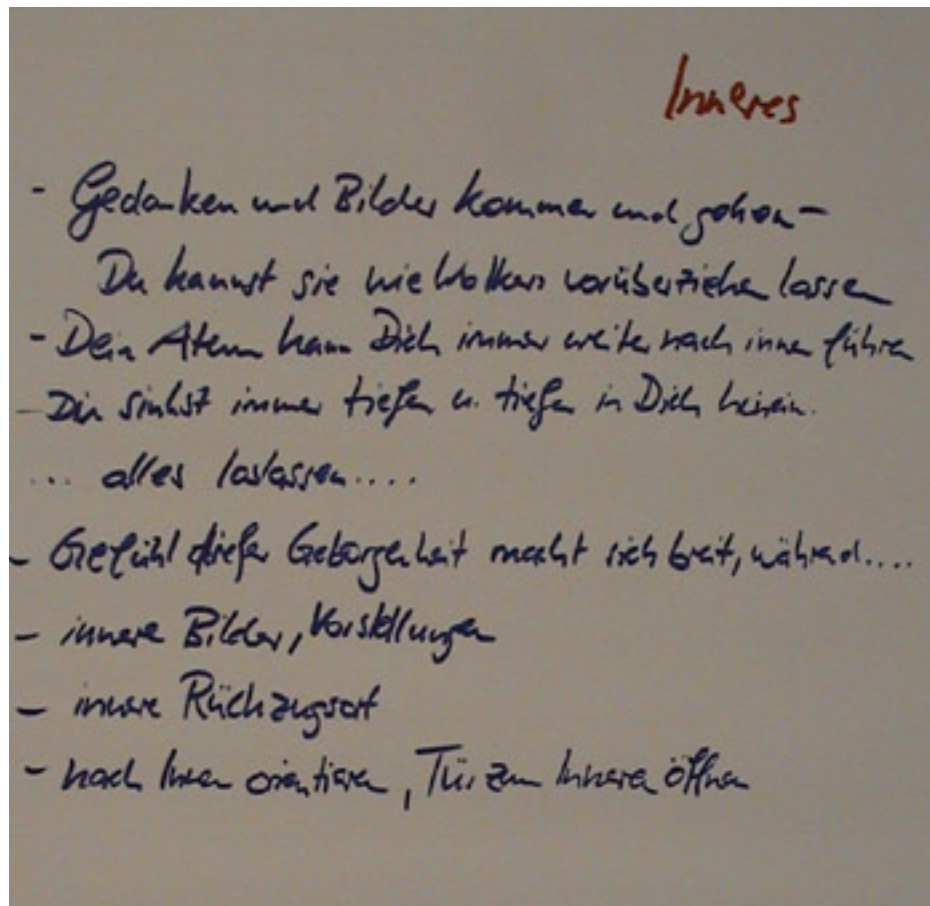 Inneres
- Gedanken und Bilder kommen und gehen -
Du kannst sie wie Wolken vorüberziehen lassen
- Dein Atem kann Dich immer weiter nach innen führen
- Du sinkst immer tiefer u. tiefer in Dich hinein.
... alles loslassen....
- Gefühl tiefer Geborgenheit macht sich breit, während....
- innere Bilder, Vorstellungen
- innere Rückzugsort
- nach Innen orientieren, Tür zum Inneren öffnen